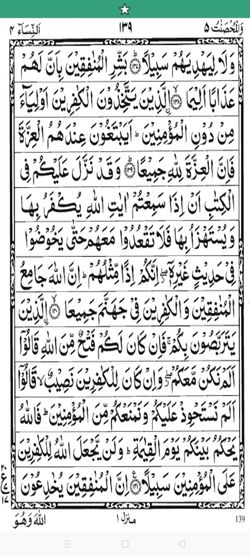 وَالْمُحْصَنٰتُ ٥ ١٣٩ اَلنِّسَآء ٤
وَلَا لِيَهْدِيَهُمْ سَبِيْلًا ﴿١٣٧﴾ بَشِّرِ الْمُنٰفِقِيْنَ بِاَنَّ لَهُمْ
عَذَابًا اَلِيْمًا ﴿١٣٨﴾ الَّذِيْنَ يَتَّخِذُوْنَ الْكٰفِرِيْنَ اَوْلِيَآءَ
مِنْ دُوْنِ الْمُؤْمِنِيْنَ ؕ اَيَبْتَغُوْنَ عِنْدَهُمُ الْعِزَّةَ
فَاِنَّ الْعِزَّةَ لِلّٰهِ جَمِيْعًا ﴿١٣٩﴾ وَقَدْ نَزَّلَ عَلَيْكُمْ فِى
الْكِتٰبِ اَنْ اِذَا سَمِعْتُمْ اٰيٰتِ اللّٰهِ يُكْفَرُ بِهَا
وَيُسْتَهْزَاُ بِهَا فَلَا تَقْعُدُوْا مَعَهُمْ حَتّٰى يَخُوْضُوْا
فِىْ حَدِيْثٍ غَيْرِهٖٓ ۖ اِنَّكُمْ اِذًا مِّثْلُهُمْ ؕ اِنَّ اللّٰهَ جَامِعُ
الْمُنٰفِقِيْنَ وَالْكٰفِرِيْنَ فِىْ جَهَنَّمَ جَمِيْعًا ﴿١٤٠﴾ الَّذِيْنَ
يَتَرَبَّصُوْنَ بِكُمْ ۚ فَاِنْ كَانَ لَكُمْ فَتْحٌ مِّنَ اللّٰهِ قَالُوْٓا
اَلَمْ نَكُنْ مَّعَكُمْ ۖ وَاِنْ كَانَ لِلْكٰفِرِيْنَ نَصِيْبٌ ۙ قَالُوْٓا
اَلَمْ نَسْتَحْوِذْ عَلَيْكُمْ وَنَمْنَعْكُمْ مِّنَ الْمُؤْمِنِيْنَ ؕ فَاللّٰهُ
يَحْكُمُ بَيْنَكُمْ يَوْمَ الْقِيٰمَةِ ؕ وَلَنْ يَّجْعَلَ اللّٰهُ لِلْكٰفِرِيْنَ
عَلَى الْمُؤْمِنِيْنَ سَبِيْلًا ﴿١٤١﴾ اِنَّ الْمُنٰفِقِيْنَ يُخٰدِعُوْنَ
اللّٰهَ وَهُوَ منزل ١ 139